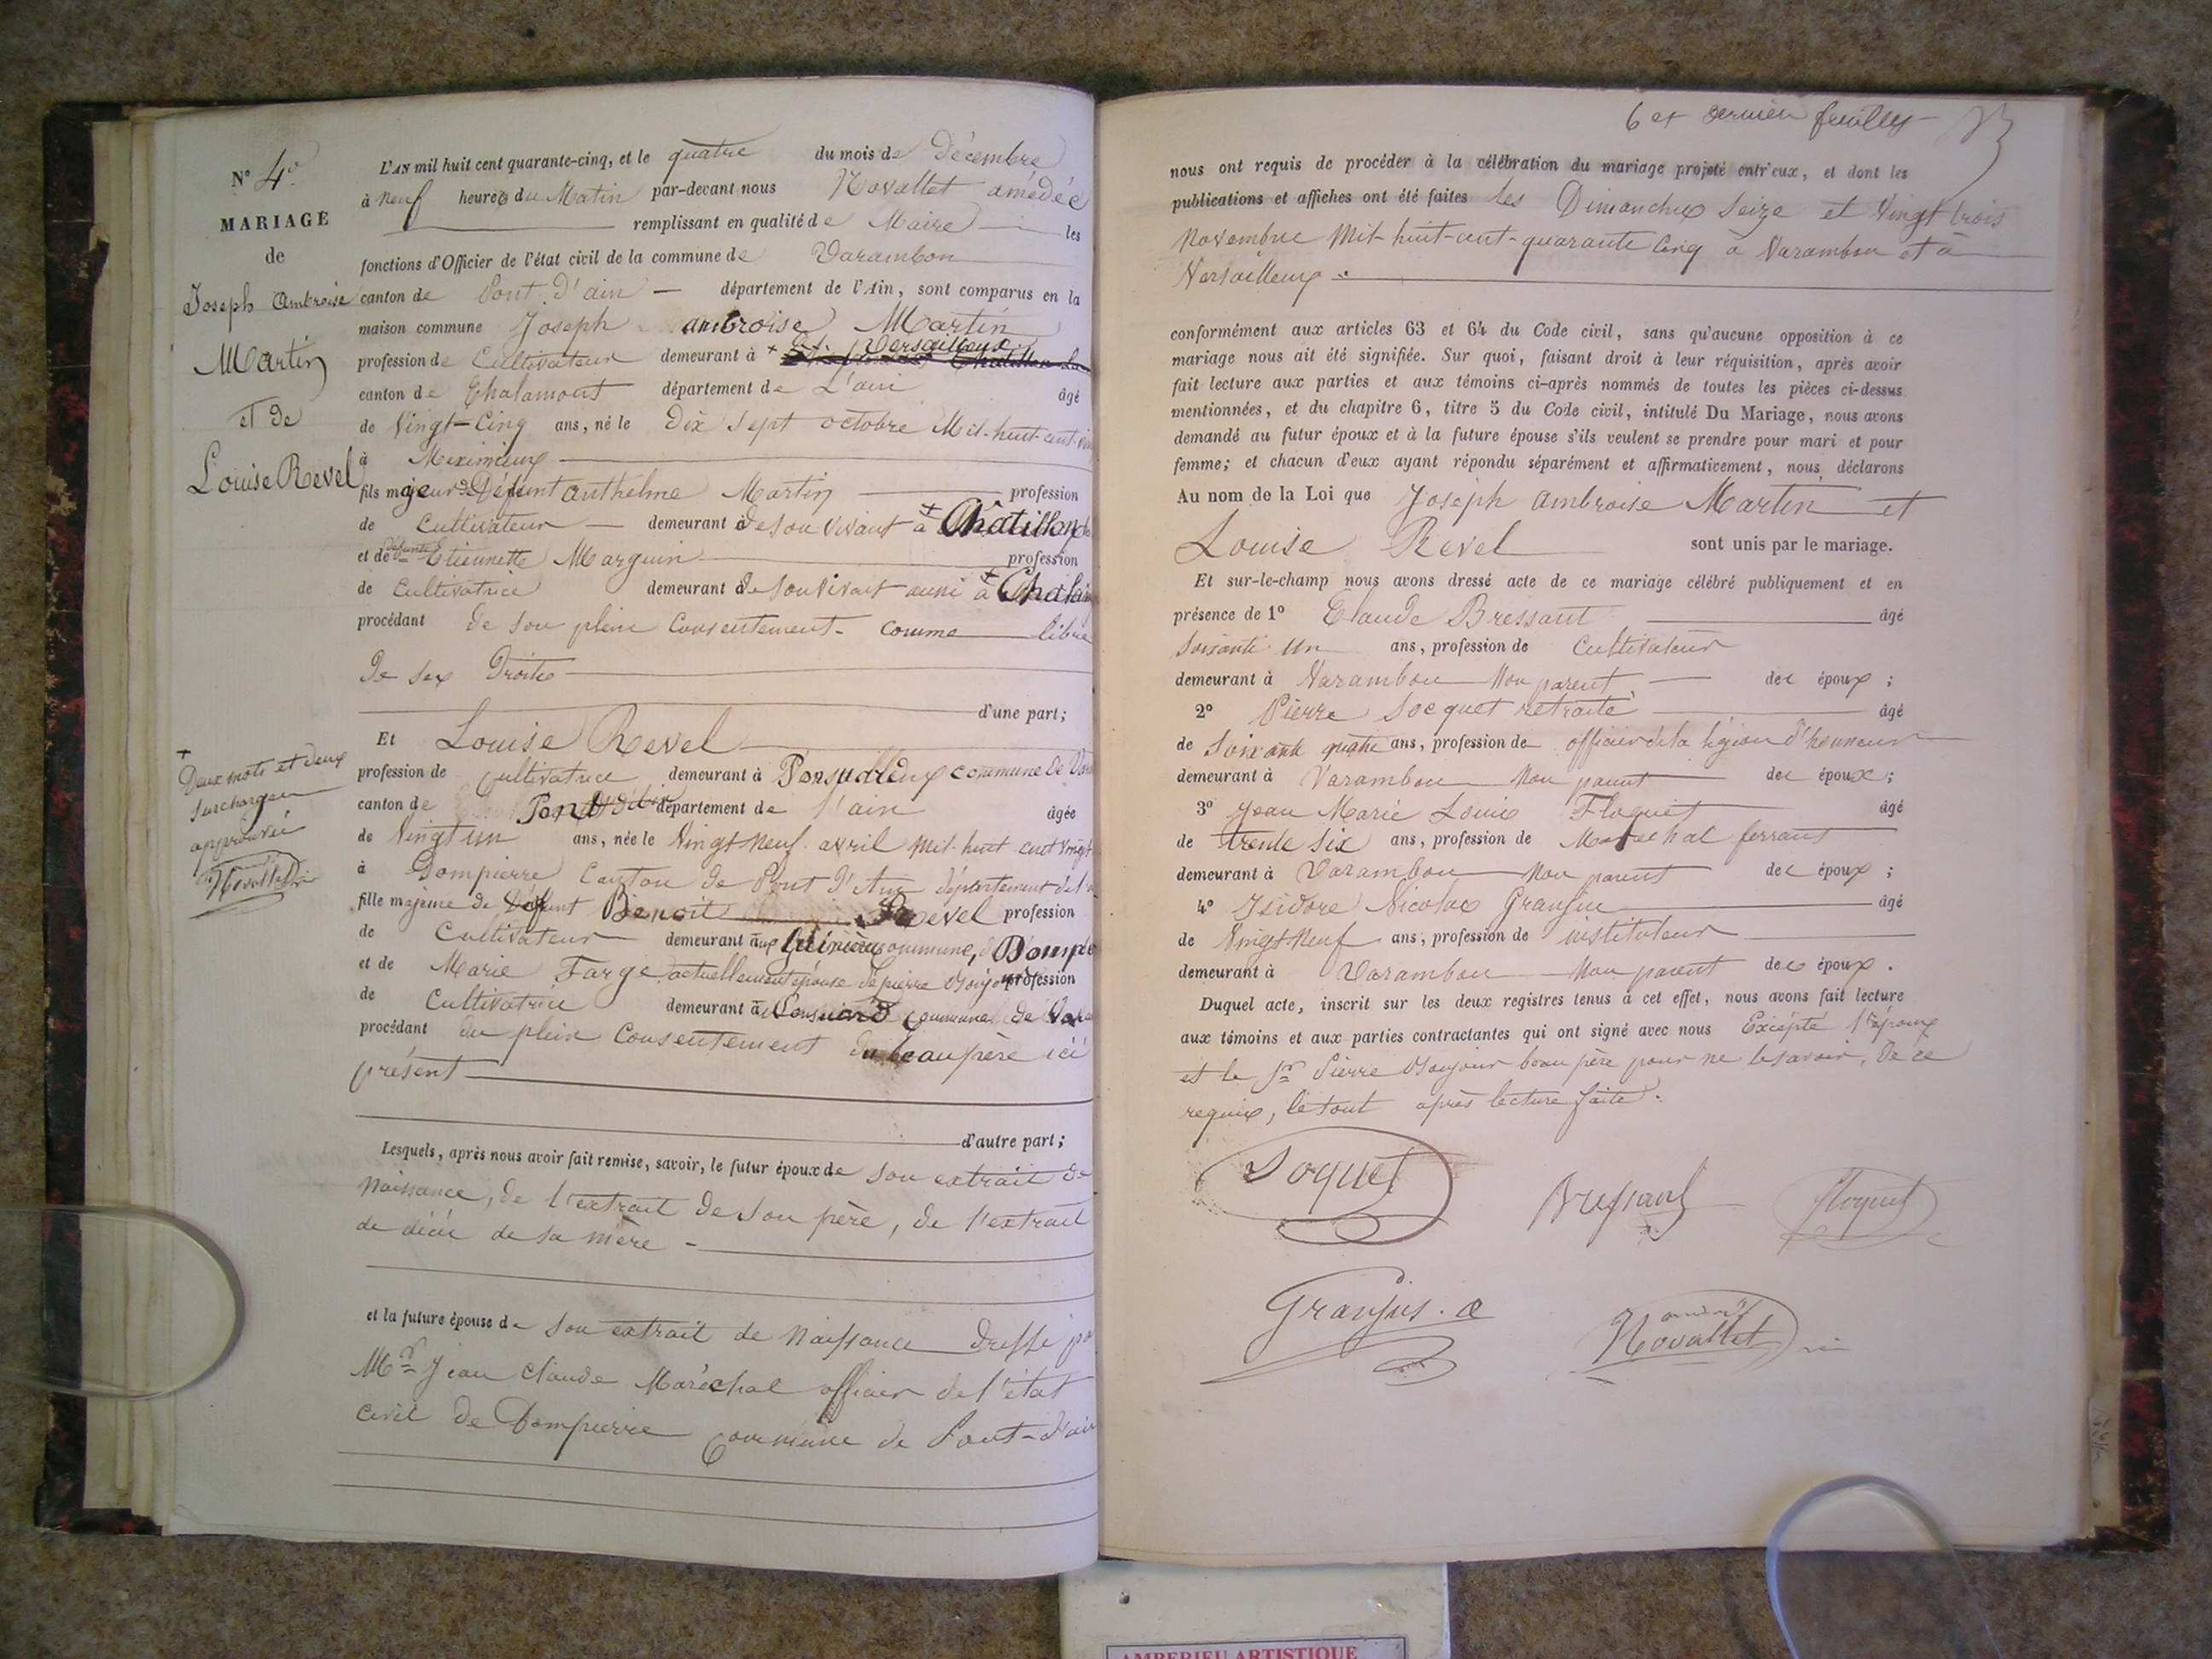 N° 4e
MARIAGE
de
Joseph Ambroise
Martin
et de
Louise Revel
L'AN mil huit cent quarante-cinq, et le quatre du mois de Décembre
à neuf heures du Matin par-devant nous Novallet amédée
remplissant en qualité de Maire les
fonctions d'Officier de l'état civil de la commune de Varambon
canton de Pont d'ain département de l'Ain, sont comparus en la
maison commune Joseph ambroise Martin
profession de Cultivateur demeurant à + Versailleux
canton de Chalamont département de L'ain âgé
de Vingt-Cinq ans, né le dix sept octobre Mil-huit-cent-
à Meximieux
fils majeur de Défunt anthelme Martin profession
de Cultivateur demeurant de son vivant à + Châtillon
et de défunte Etiennette Marguin profession
de Cultivatrice demeurant de son vivant aussi à +
procédant de son plein Consentement comme libre
de ses Droits
d'une part;
Et Louise Revel
profession de Cultivatrice demeurant à commune de
canton de Pont d'ain département de l'ain âgée
de Vingt un ans, née le Vingt neuf avril mil-huit cent vingt
à Dompierre Canton de Pont d'Ain département de l'
fille majeure de Défunt Benoit Revel profession
de Cultivateur demeurant aux commune, de Dompie
et de Marie Farge actuellement épouse de pierre profession
de Cultivatrice demeurant à commune de Vara
procédant du plein Consentement du beau père ici
présent
d'autre part;
+
Deux mots et deux
surcharges
approuvés
Novallet
Lesquels, après nous avoir fait remise, savoir, le futur époux de son extrait de
naissance, de l'extrait de son père, de l'extrait
de décès de sa mère
et la future épouse de son extrait de naissance dressé pa
Mr Jean Claude Maréchal officier de l'état
civil de Dompierre commune de Pont-d'ain
6 et dernier feuillet
nous ont requis de procéder à la célébration du mariage projeté entr'eux, et dont les
publications et affiches ont été faites les Dimanches Seize et Vingt trois
Novembre Mil-huit-cent-quarante Cinq à Varambon et à
Versailleux
conformément aux articles 63 et 64 du Code civil, sans qu'aucune opposition à ce
mariage nous ait été signifiée. Sur quoi, faisant droit à leur réquisition, après avoir
fait lecture aux parties et aux témoins ci-après nommés de toutes les pièces ci-dessus
mentionnées, et du chapitre 6, titre 5 du Code civil, intitulé Du Mariage, nous avons
demandé au futur époux et à la future épouse s'ils veulent se prendre pour mari et pour
femme; et chacun d'eux ayant répondu séparément et affirmativement, nous déclarons
Au nom de la Loi que Joseph Ambroise Martin et
Louise Revel sont unis par le mariage.
Et sur-le-champ nous avons dressé acte de ce mariage célébré publiquement et en
présence de 1° Claude Bressant âgé
Soixante un ans, profession de Cultivateur
demeurant à Varambon Non parent des époux ;
2° Pierre Socquet retraité âgé
de Soixante quatre ans, profession de officier de la légion d'honneur
demeurant à Varambon Non parent des époux ;
3° Jean Marie Louis Floquet âgé
de trente six ans, profession de Maréchal ferrant
demeurant à Varambon Non parent des époux ;
4° Isidore Nicolas Granjus âgé
de Vingt Neuf ans, profession de instituteur
demeurant à Varambon Non parent des époux .
Duquel acte, inscrit sur les deux registres tenus à cet effet, nous avons fait lecture
aux témoins et aux parties contractantes qui ont signé avec nous Excepté les époux
et le Sr Pierre beau père pour ne le savoir, de ce
requis, le tout après lecture faite.
Soquet
Bressant
Floquet
Granjus
Novallet
AMBERIEU ARTISTIQUE